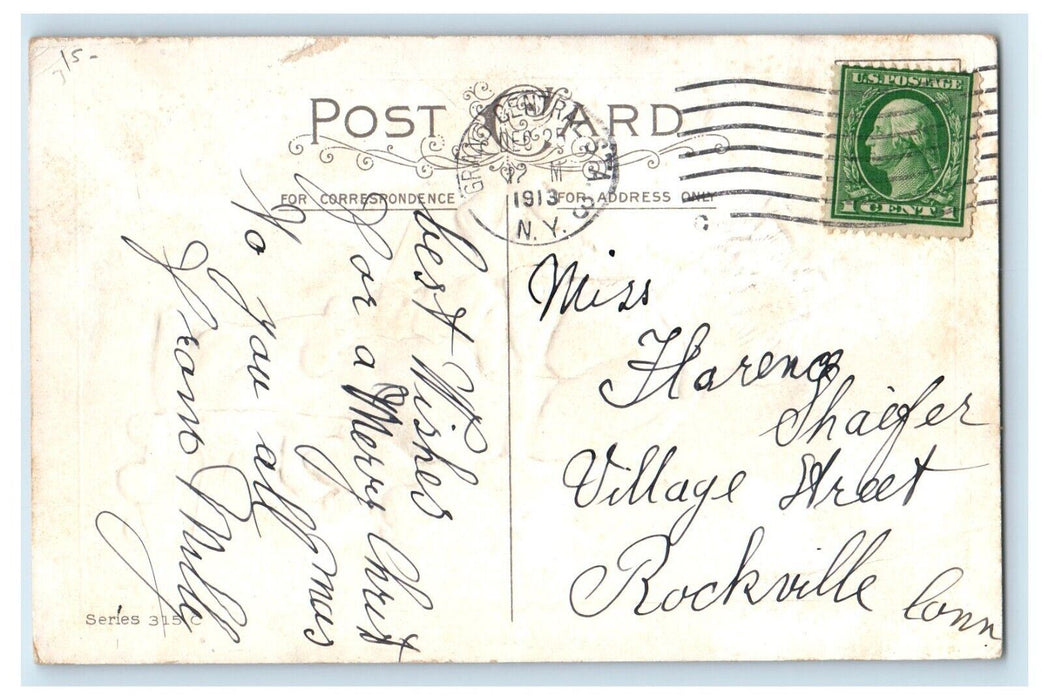 15-
POST CARD
FOR CORRESPONDENCE
FOR ADDRESS ONLY
GRAND CENTRAL STA
DEC 25
12 M
1913
N.Y.
U.S. POSTAGE
1 CENT 1
best Wishes
For a Merry Christ
mas
To you all
From Milly
Miss
Florence
Shaefer
Village Street
Rockville Conn
Series 315 C